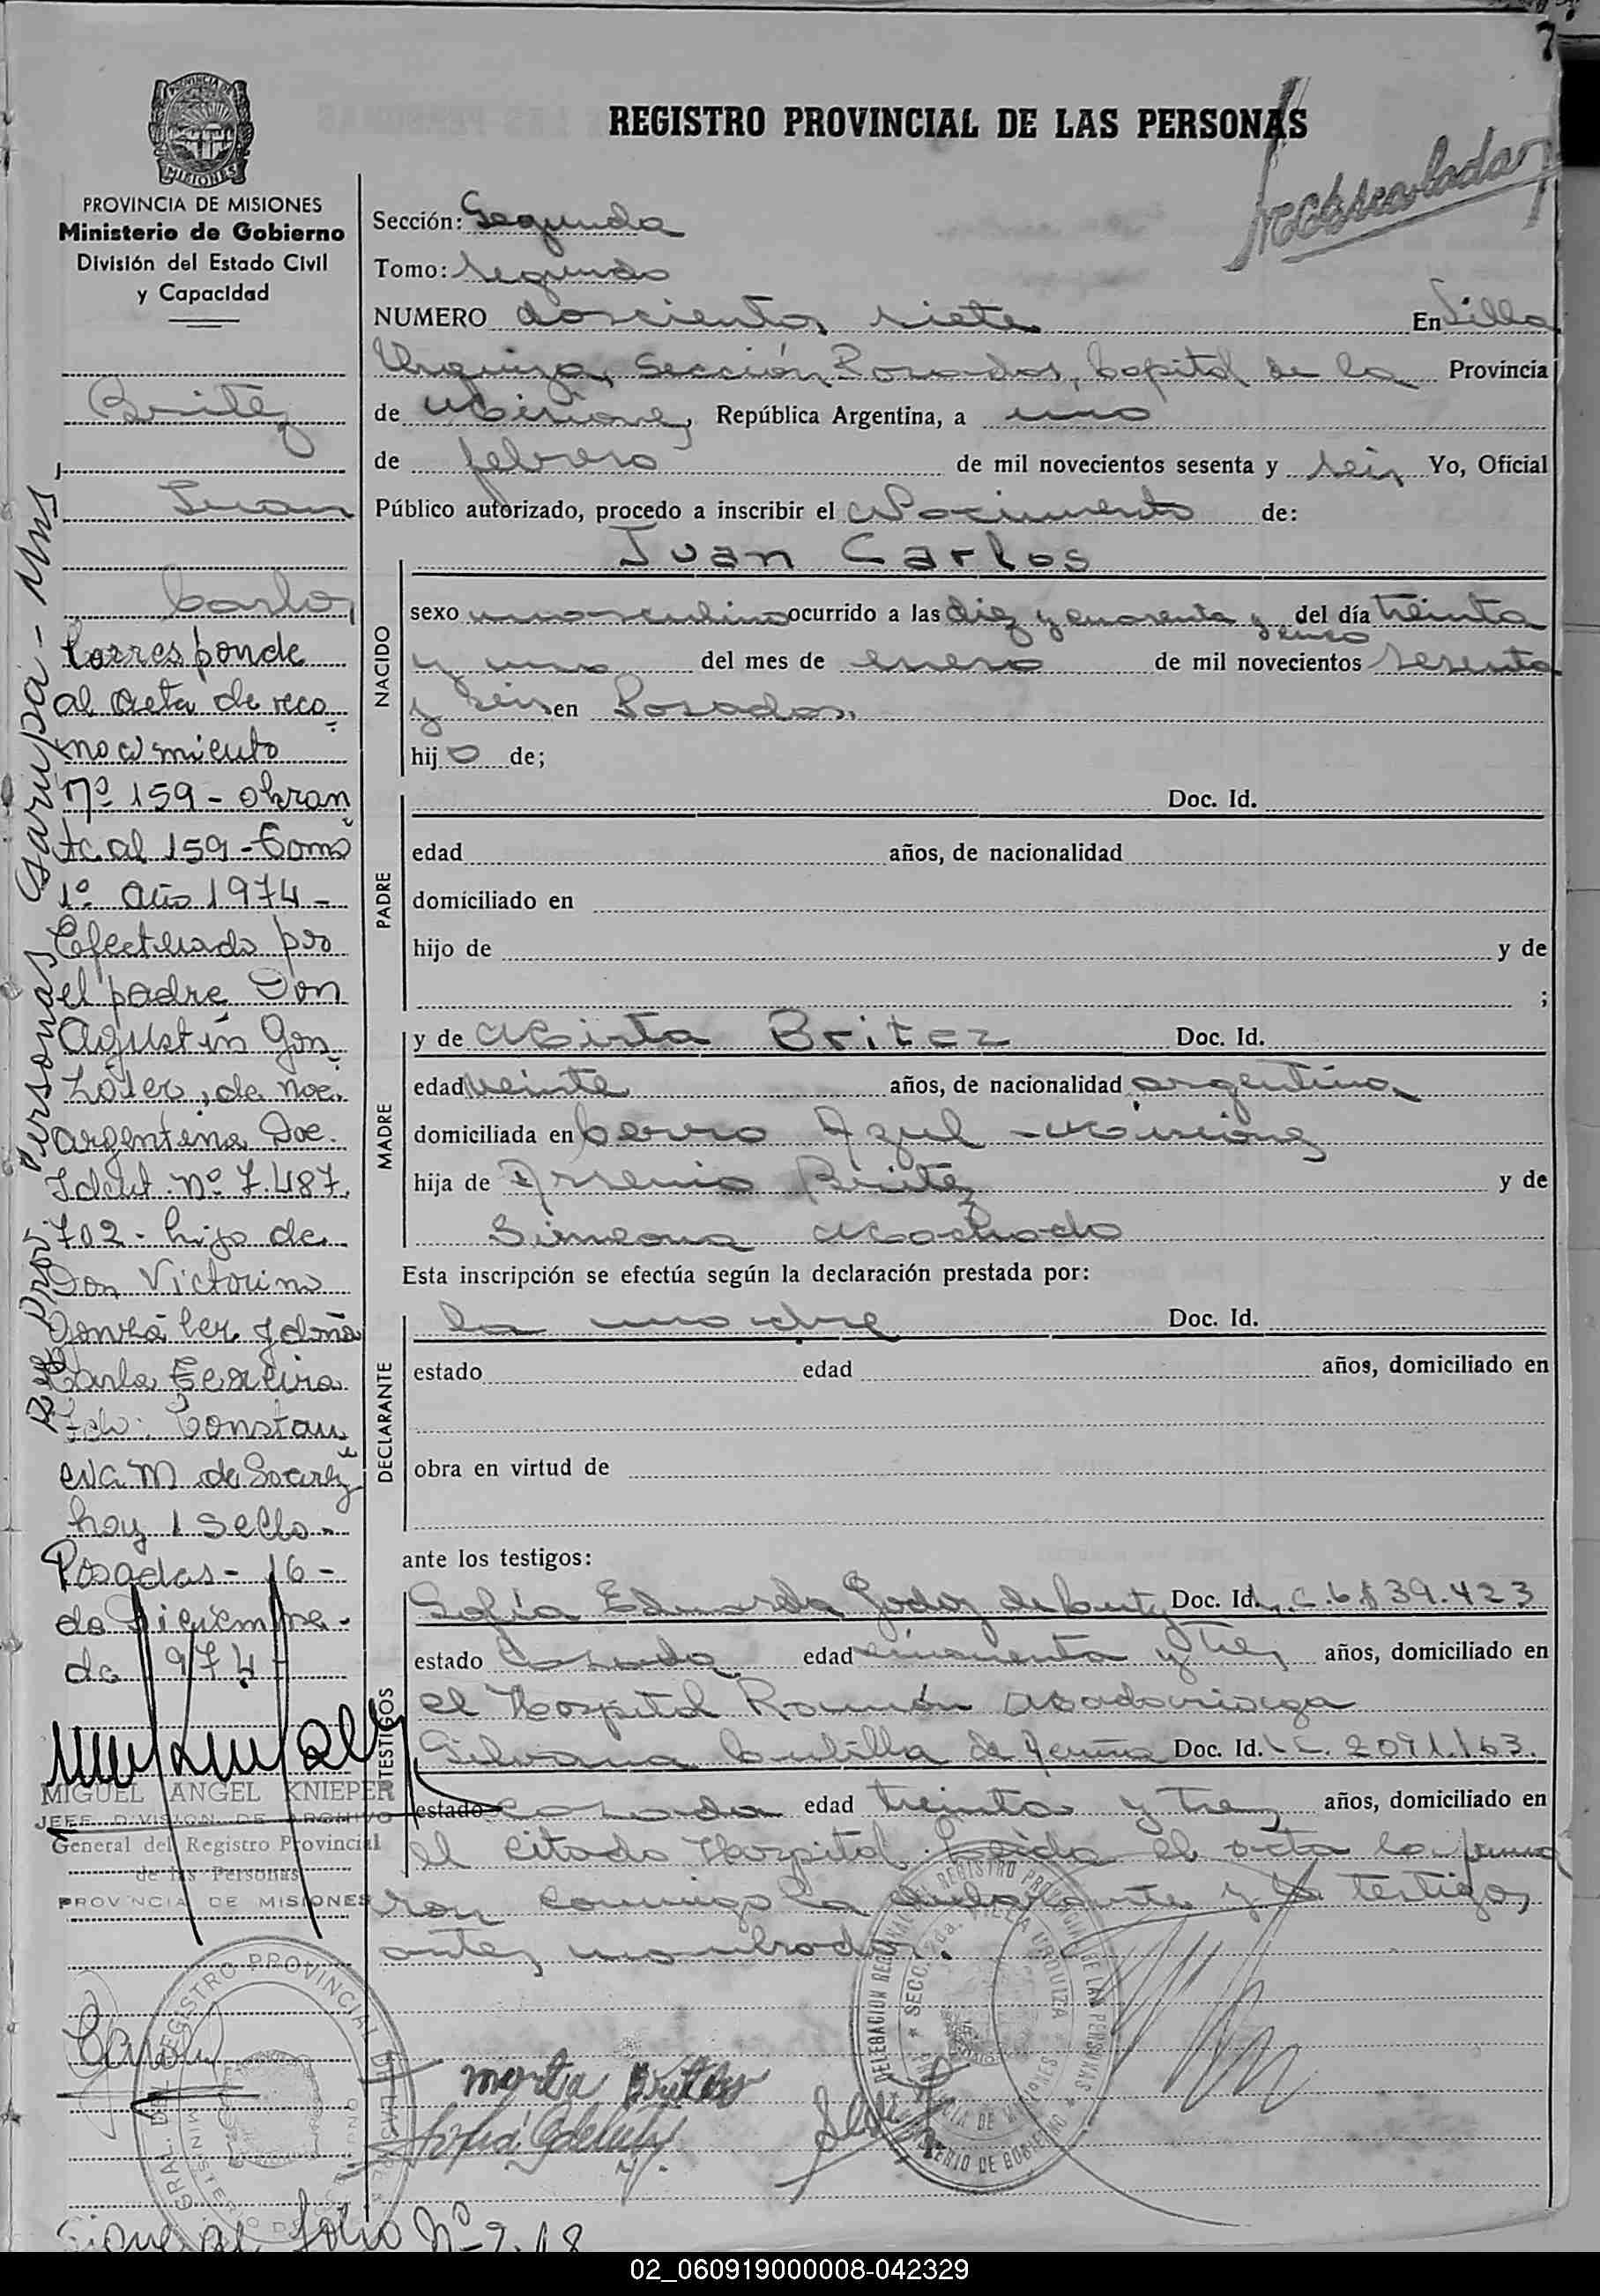 7
REGISTRO PROVINCIAL DE LAS PERSONAS
PROVINCIA DE MISIONES
Ministerio de Gobierno
División del Estado Civil
y Capacidad
Britez
Juan
Carlos
Corresponde
al acta de reco
nocimiento
Nº 159 - obran
te al 159 - Tomo
1º Año 1974 -
Efectuado por
el padre Don
Agustin Gon
zález, de nac.
argentina Doc.
Ident. Nº 7.487.
702 - hijo de
Don Victorino
González y doña
Carla Texeira
Fdo: Constan
M. de
hay 1 sello -
Posadas - 16 -
de Diciembre -
de 1974 -
MIGUEL ANGEL KNIEPER
JEFE DIVISION DE ARCHIVO
General del Registro Provincial
de las Personas
PROVINCIA DE MISIONES
Reg. Prov. Personas Garupá - Mns
Sección: Segunda
Tomo: Segundo
NUMERO doscientos siete En Villa
Urquiza, Sección Posadas, Capital de la Provincia
de Misiones, República Argentina, a uno
de febrero de mil novecientos sesenta y seis Yo, Oficial
Público autorizado, procedo a inscribir el Nacimiento de:
Juan Carlos
NACIDO
sexo masculino ocurrido a las diez y cuarenta y cinco del día treinta
y uno del mes de enero de mil novecientos sesenta
y seis en Posadas.
hijo de;
PADRE
Doc. Id.
edad años, de nacionalidad
domiciliado en
hijo de y de
;
MADRE
y de Mirta Britez Doc. Id.
edad veinte años, de nacionalidad argentina
domiciliada en Cerro Azul - Misiones
hija de Arsenio Britez y de
Simeona Machado
Esta inscripción se efectúa según la declaración prestada por:
DECLARANTE
la madre Doc. Id.
estado edad años, domiciliado en
obra en virtud de
ante los testigos:
TESTIGOS
Sofía Eduarda Godoy de Doc. Id. L.C. 423
estado casada edad cincuenta y tres años, domiciliado en
el Hospital Ramón Madariaga
Silvana de Doc. Id. L.C. 2091.163.
estado casada edad treinta y tres años, domiciliado en
el citado Hospital. Leída el acta la firma
ron conmigo la declarante y los testigos
antes nombrados.
DELEGACION REGIONAL DEL REGISTRO PROVINCIAL DE LAS PERSONAS
SECC. 2da. VILLA URQUIZA
PROVINCIA DE MISIONES
MINISTERIO DE GOBIERNO
REGISTRO PROVINCIAL DE LAS PERSONAS
Sigue al folio Nº 218
02_060919000008-042329